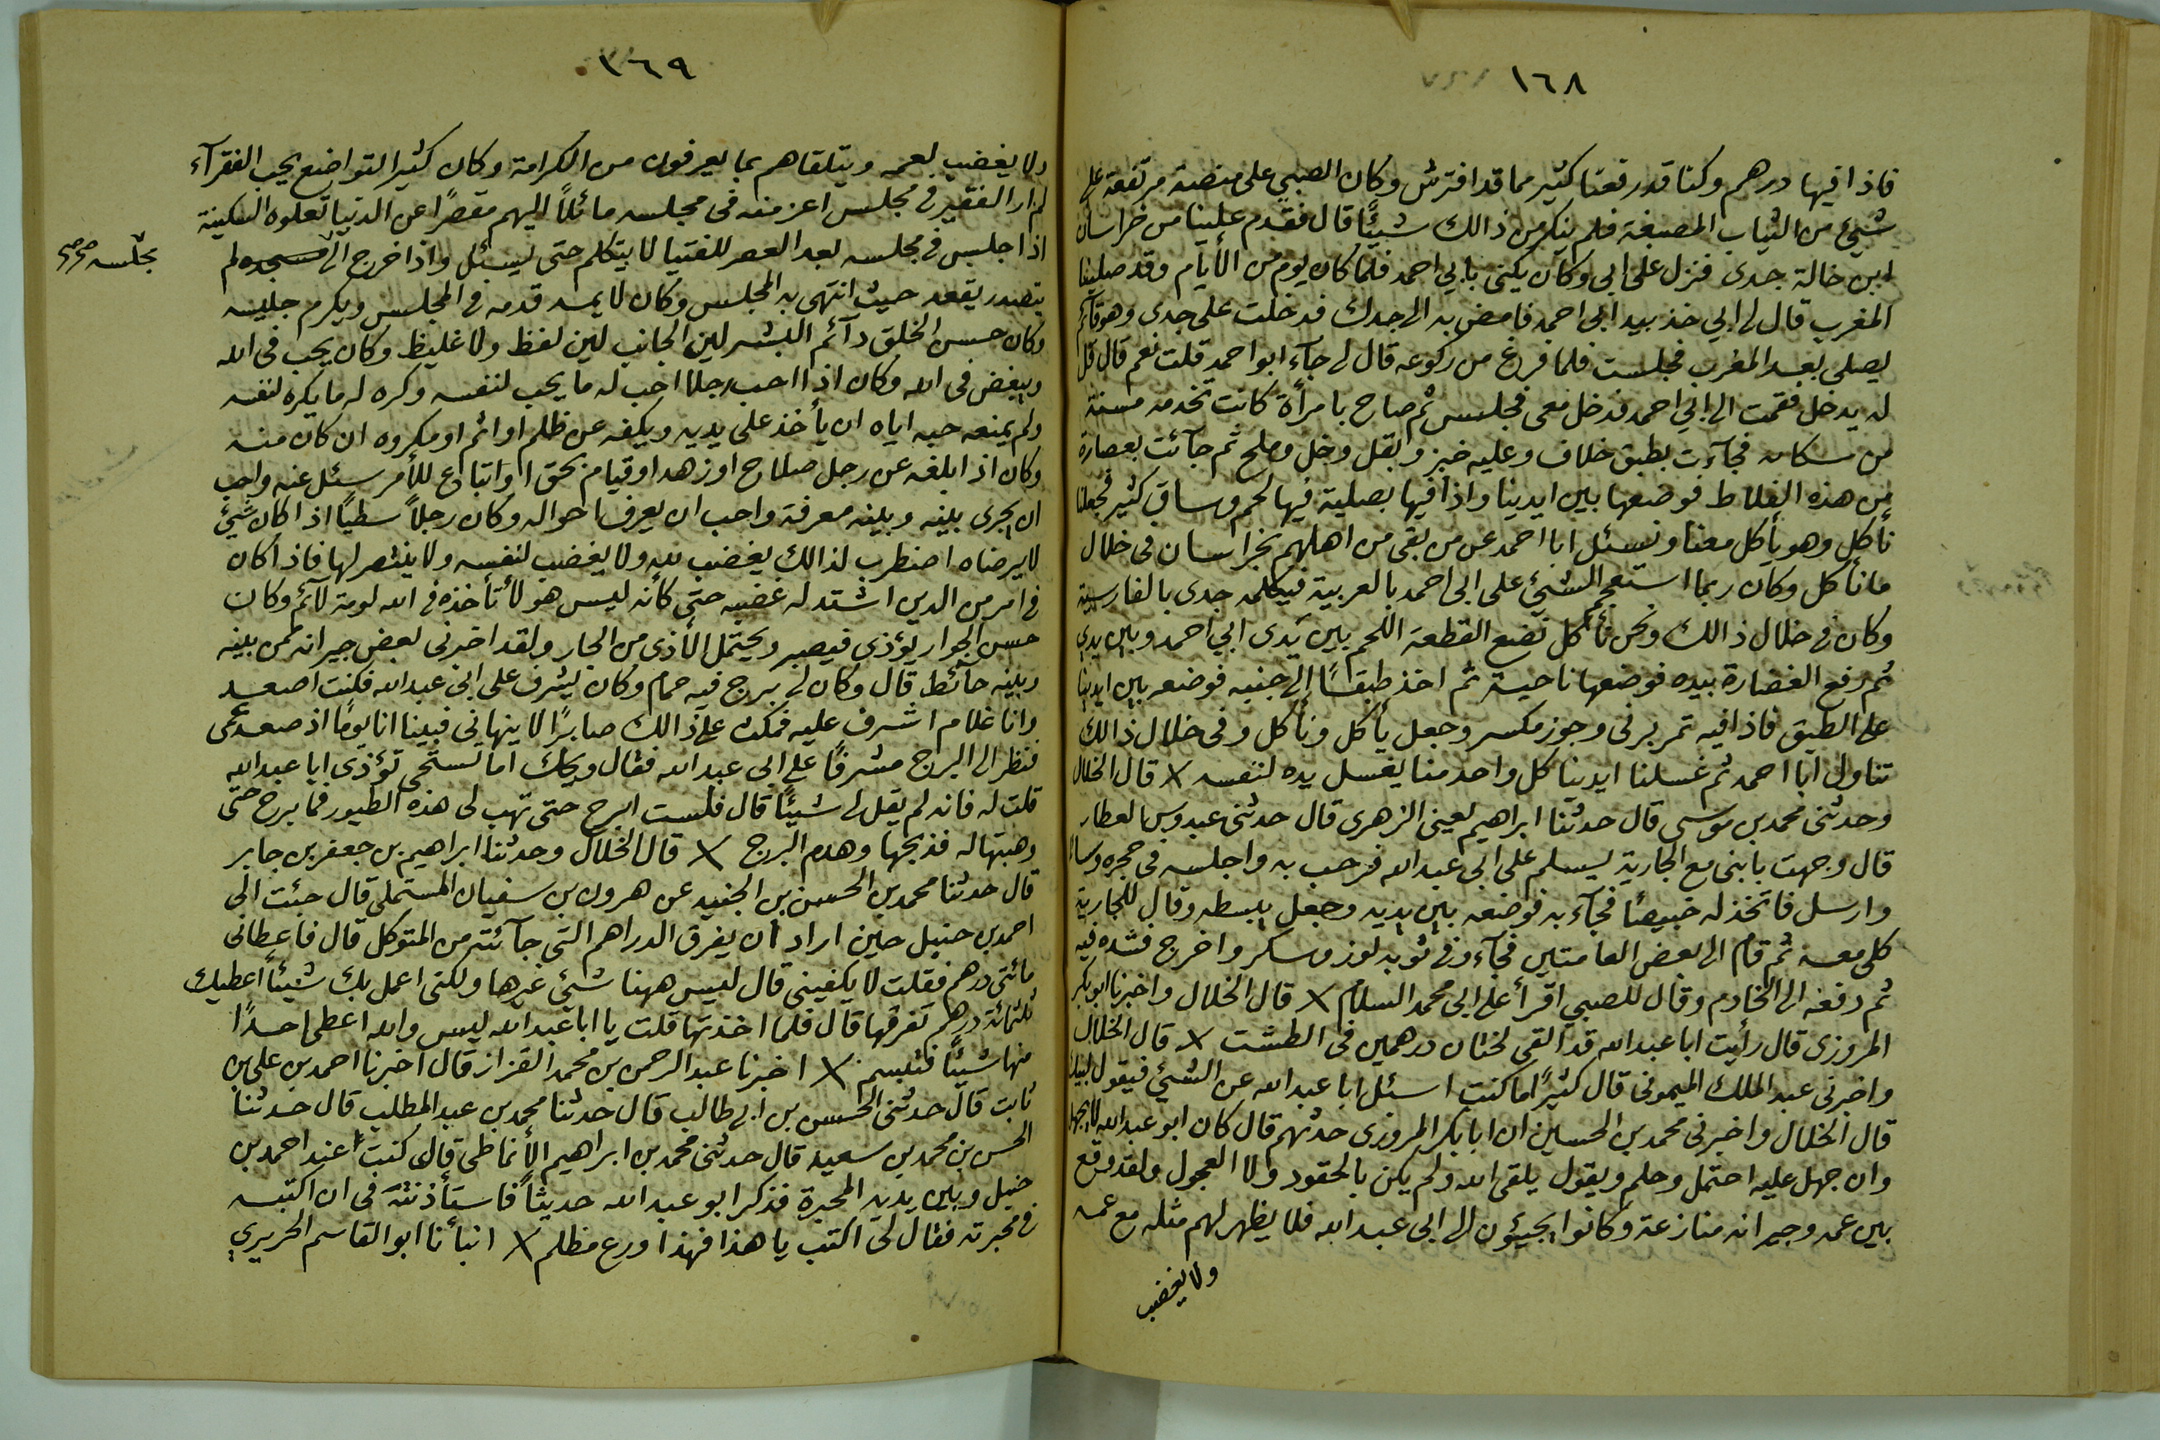 ١٦٨
فاذا فيها درهم وكنا قد رفعنا كثير مما قد افترش وكان الصبي على منصة مرتفعة على
شيئ من الثياب المصبغة فلم ينكر من ذالك شيئًا قال فقدم علينا من خراسان
ابن خالة جدى فنزل على ابى وكان يكنى بابي احمد فلما كان يوم من الأيام وقد صلينا
المغرب قال لى ابي خذ بيد ابى احمد فامض به الى جدك فدخلت على جدى وهو قآئم
يصلى بعد المغرب فجلست فلما فرغ من ركوعه قال لى جآء ابو احمد قلت نعم قال قل
له يدخل فقمت الى ابي احمد فدخل معى فجلس ثم صاح بامرأة كانت تخدمه مسنة
من سكانه فجآءت بطبق خلاف وعليه خبز وبقل وخل وملح ثم جآئت بعصارة
من هذه الغلاظ فوضعها بين ايدينا واذا فيها بصلية فيها لحم وساق كثير فجعلنا
نأكل وهو يأكل معنا ونسئل ابا احمد عن من بقى من اهلهم بخراسان فى خلال
مانأكل وكان ربما استعجم الشيئ على ابى احمد بالعربية فيكلمه جدى بالفارسية
وكان فى خلال ذالك ونحن نأكل تضع القطعة اللحم بين يدى ابي احمد وبين يدي
ثم رفع الغضارة بيده فوضعها ناحية ثم اخذ طبقًا الى جنبه فوضعه بين ايدينا
على الطبق فاذا فيه تمر برنى وجوز مكسر وجعل يأكل ونأكل وفى خلال ذالك
تناول ابا احمد ثم غسلنا ايدينا كل واحد منا يغسل يده لنفسه × قال الخلال
وحدثنى محمد بن موسى قال حدثنا ابراهيم يعني الزهرى قال حدثنى عبدوس العطار
قال وجهت بابنى مع الجارية ليسلم على ابى عبد الله فرحب به واجلسه فى حجره وسا
وارسل فاتخذ له خبيصًا فجآء به فوضعه بين يديه وجعل يبسطه وقال للجارية
كلى معه ثم قام الى بعض العامتين فجآء وفى ثوبه لوز وسكر واخرج فشده فيه
ثم دفعه الى الخادم وقال للصبي اقرأ على ابى محمد السلام × قال الخلال واخبرنا ابو بكر
المروزى قال رأيت ابا عبد الله قد القى لختان درهمين فى الطشت × قال الخلال
واخبرنى عبد الملك الميمونى قال كثيرًا ما كنت اسئل ابا عبد الله عن الشيئ فيقول لبيك
قال الخلال واخبرنى محمد بن الحسين ان ابا بكر المروزى حدثهم قال كان ابو عبد الله لا يجهل
وان جهل عليه احتمل وحلم ويقول يلقى الله ولم يكن بالحقود ولا العجول ولقد وقع
بين عمه وجيرانه منازعة وكانوا يجيئون الى ابى عبد الله فلا يظهر لهم مثله مع عمه
ولا يغضب
٣٦٩
ولا يغضب لعمه ويتلقاهم بما يعرفون من الكرامة وكان كثير التواضع يحب الفقرآء
لم ار الفقير فى مجلس اعز منه فى مجلسه مائلاً اليهم مقصرًا عن الدنيا تعلوه السكينة
اذا جلس فى مجلسه بعد العصر للفتيا لا يتكلم حتى يسئل واذا خرج الى مسجده لم
مجلسه صح صح
يتصدر يقعد حيث انتهى به المجلس وكان لا يمد قدمه فى المجلس ويكرم جليسه
وكان حسن الخلق دآئم البشر لين الجانب ليس بفظ ولا غليظ وكان يحب فى الله
ويبغض فى الله وكان اذا احب رجلا احب له ما يحب لنفسه وكره له ما يكره لنفسه
ولم يمنعه حبه اياه ان يأخذ على يديه ويكفه عن ظلم او اثم او مكروه ان كان منه
وكان اذا بلغه عن رجل صلاح او زهد او قيام بحق او اتباع للأمر سئل عنه واحب
ان يجرى بينه وبينه معرفة واحب ان يعرف احواله وكان رجلاً سطيًا اذا كان شيئ
لا يرضاه اضطرب لذالك يغضب لله ولا يغضب لنفسه ولا ينتصر لها فاذا كان
فى امر من الدين اشتد له غضبه حتى كأنه ليس هو لا تأخذه فى الله لومة لآئم وكان
حسن الجوار يؤذى فيصبر ويحتمل الأذى من الجار ولقد اخبرنى بعض جيرانه ممن بينه
وبينه حآئط قال وكان لى برج فيه حمام وكان يشرف على ابى عبد الله فكنت اصعد
وانا غلام اشرف عليه فمكث على ذالك صابرًا لا ينهاني فبينا انا يومًا اذ صعد عمى
فنظر الى البرج مشرفًا على ابى عبد الله فقال ويحك اما تستحى تؤذى ابا عبد الله
قلت له فانه لم يقل لى شيئًا قال فلست ابرح حتى تهب لى هذه الطيور فما برح حتى
وهبتها له فذبحها وهدم البرج × قال الخلال وحدثنا ابراهيم بن جعفر بن جابر
قال حدثنا محمد بن الحسن بن الجنيد عن هرون بن سفيان المستملى قال جئت الى
احمد بن حنبل حين اراد ان يفرق الدراهم التى جآئته من المتوكل قال فاعطانى
مائتى درهم فقلت لا يكفينى قال ليس ههنا شيئ غيرها ولكنى اعمل بك شيئًا اعطيك
ثلثمائة درهم تفرقها قال فلما اخذتها قلت يا ابا عبد الله ليس والله اعطى احدًا
منها شيئًا فتبسم × اخبرنا عبد الرحمن بن محمد القزاز قال اخبرنا احمد بن على بن
ثابت قال حدثنى الحسن بن ابى طالب قال حدثنا محمد بن عبد المطلب قال حدثنا
الحسن بن محمد بن سعيد قال حدثنى محمد بن ابراهيم الأنماطى قال كنت عند احمد بن
حنبل وبين يديه المحبرة فذكر ابو عبد الله حديثاً فاستأذنته فى ان اكتبه
فى محبرته فقال لى اكتب يا هذا فهذا ورع مظلم × انبأنا ابو القاسم الحريري